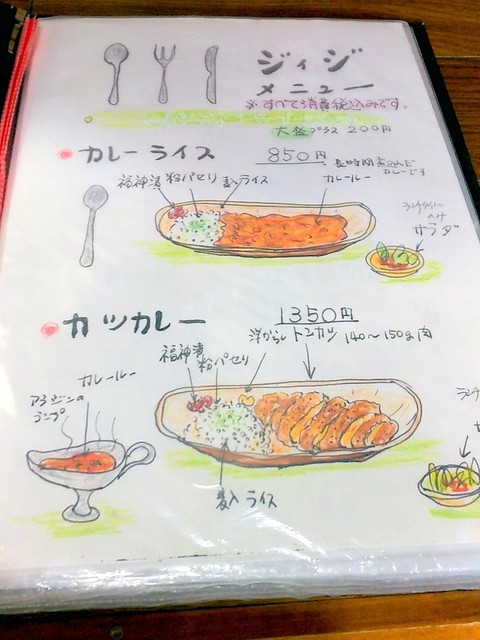 ジィジ
メニュー
※すべて消費税込みです。
大盛プラス 200円
カレーライス
850円
長時間煮込んだ
カレーです
福神漬
粉パセリ
麦入ライス
カレールー
サラダ
カツカレー
1350円
福神漬
粉パセリ
洋からし
トンカツ 140〜150g肉
カレールー
アラジンの
ランプ
麦入ライス